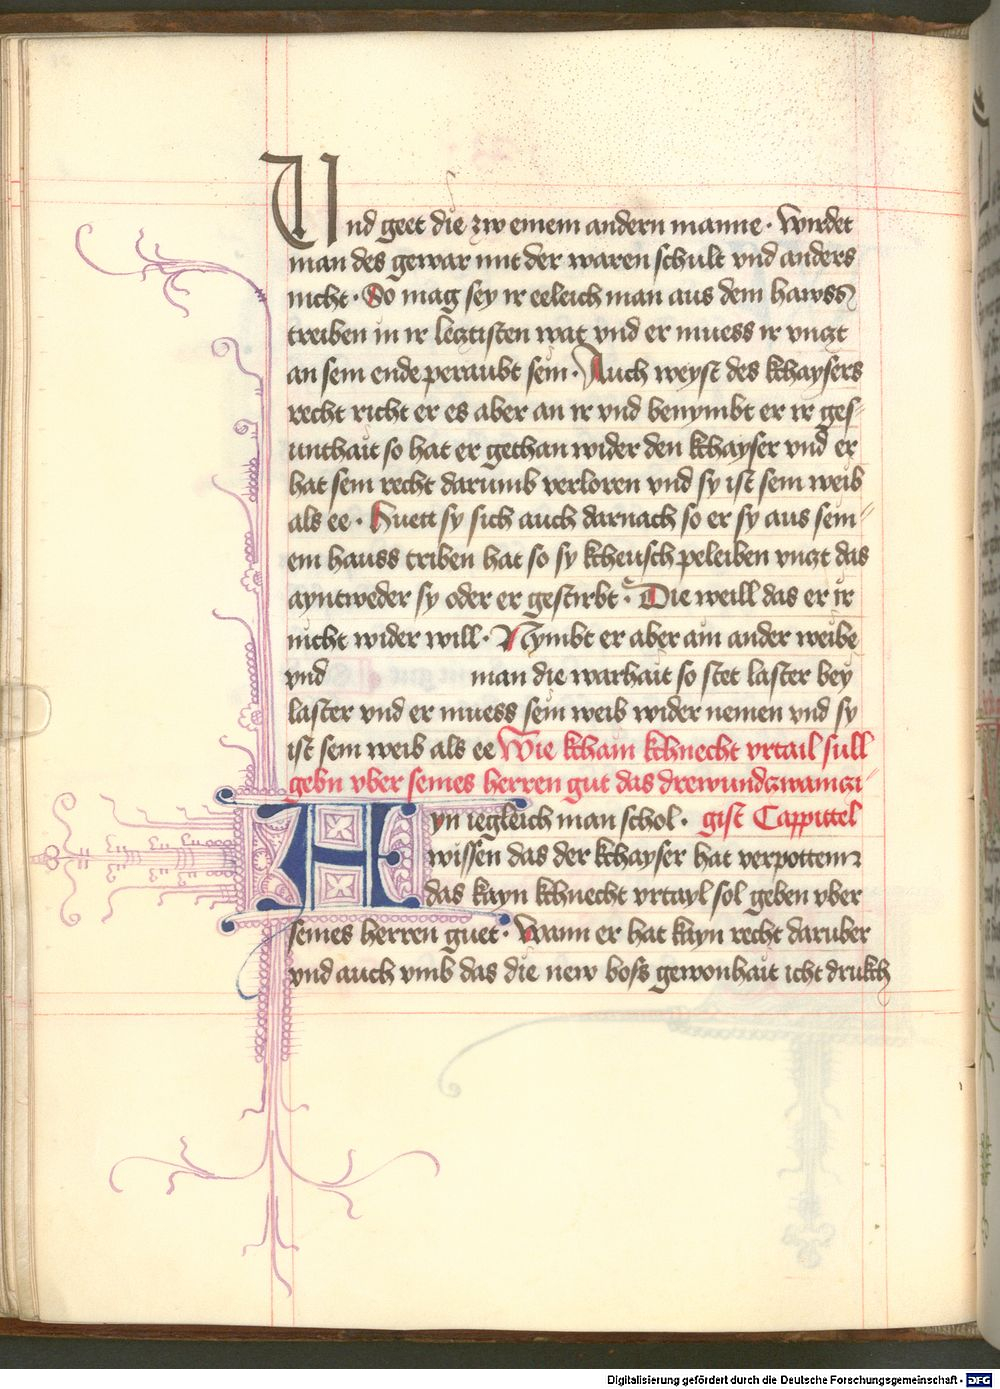 Und geet die zw einem andern manne · Wirdet
man des gewar mit der waren schult vnd anders
nicht · So mag sey ir eeleich man aus dem hawss
treiben in ir lecztisten wat vnd er muess ir vnczt
an sein ende peraubt sein · Auch weyst des kchaysers
recht richt er es aber an ir vnd benymbt er ir ges-
unthait so hat er gethan wider den kchayser vnd er
hat sein recht darumb verloren vnd sy ist sein weib
als ee · Huett sy sich auch darnach so er sy aus sein-
em hauss triben hat so sy kcheusch peleiben vnczt das
ayntweder sy oder er gestirbt · Die weill das er ir
nicht wider will · Nymbt er aber ain ander weibe
vnd man die warhait so stet laster bey
laster vnd er muess sein weib wider nemen vnd sy
ist sein weib als ee Wie kchain kchnecht vrtail sull
gebn vber seines herren gut das drewundzwainczi-
Ayn iegleich man schol · gist Cappittel
wissen das der kchayser hat verpotten
das kayn kchnecht vrtayl sol geben vber
seines herren guet · Wann er hat kayn recht daruber
vnd auch vmb das die new boss gewonhait icht drukch
Digitalisierung gefördert durch die Deutsche Forschungsgemeinschaft - DFG